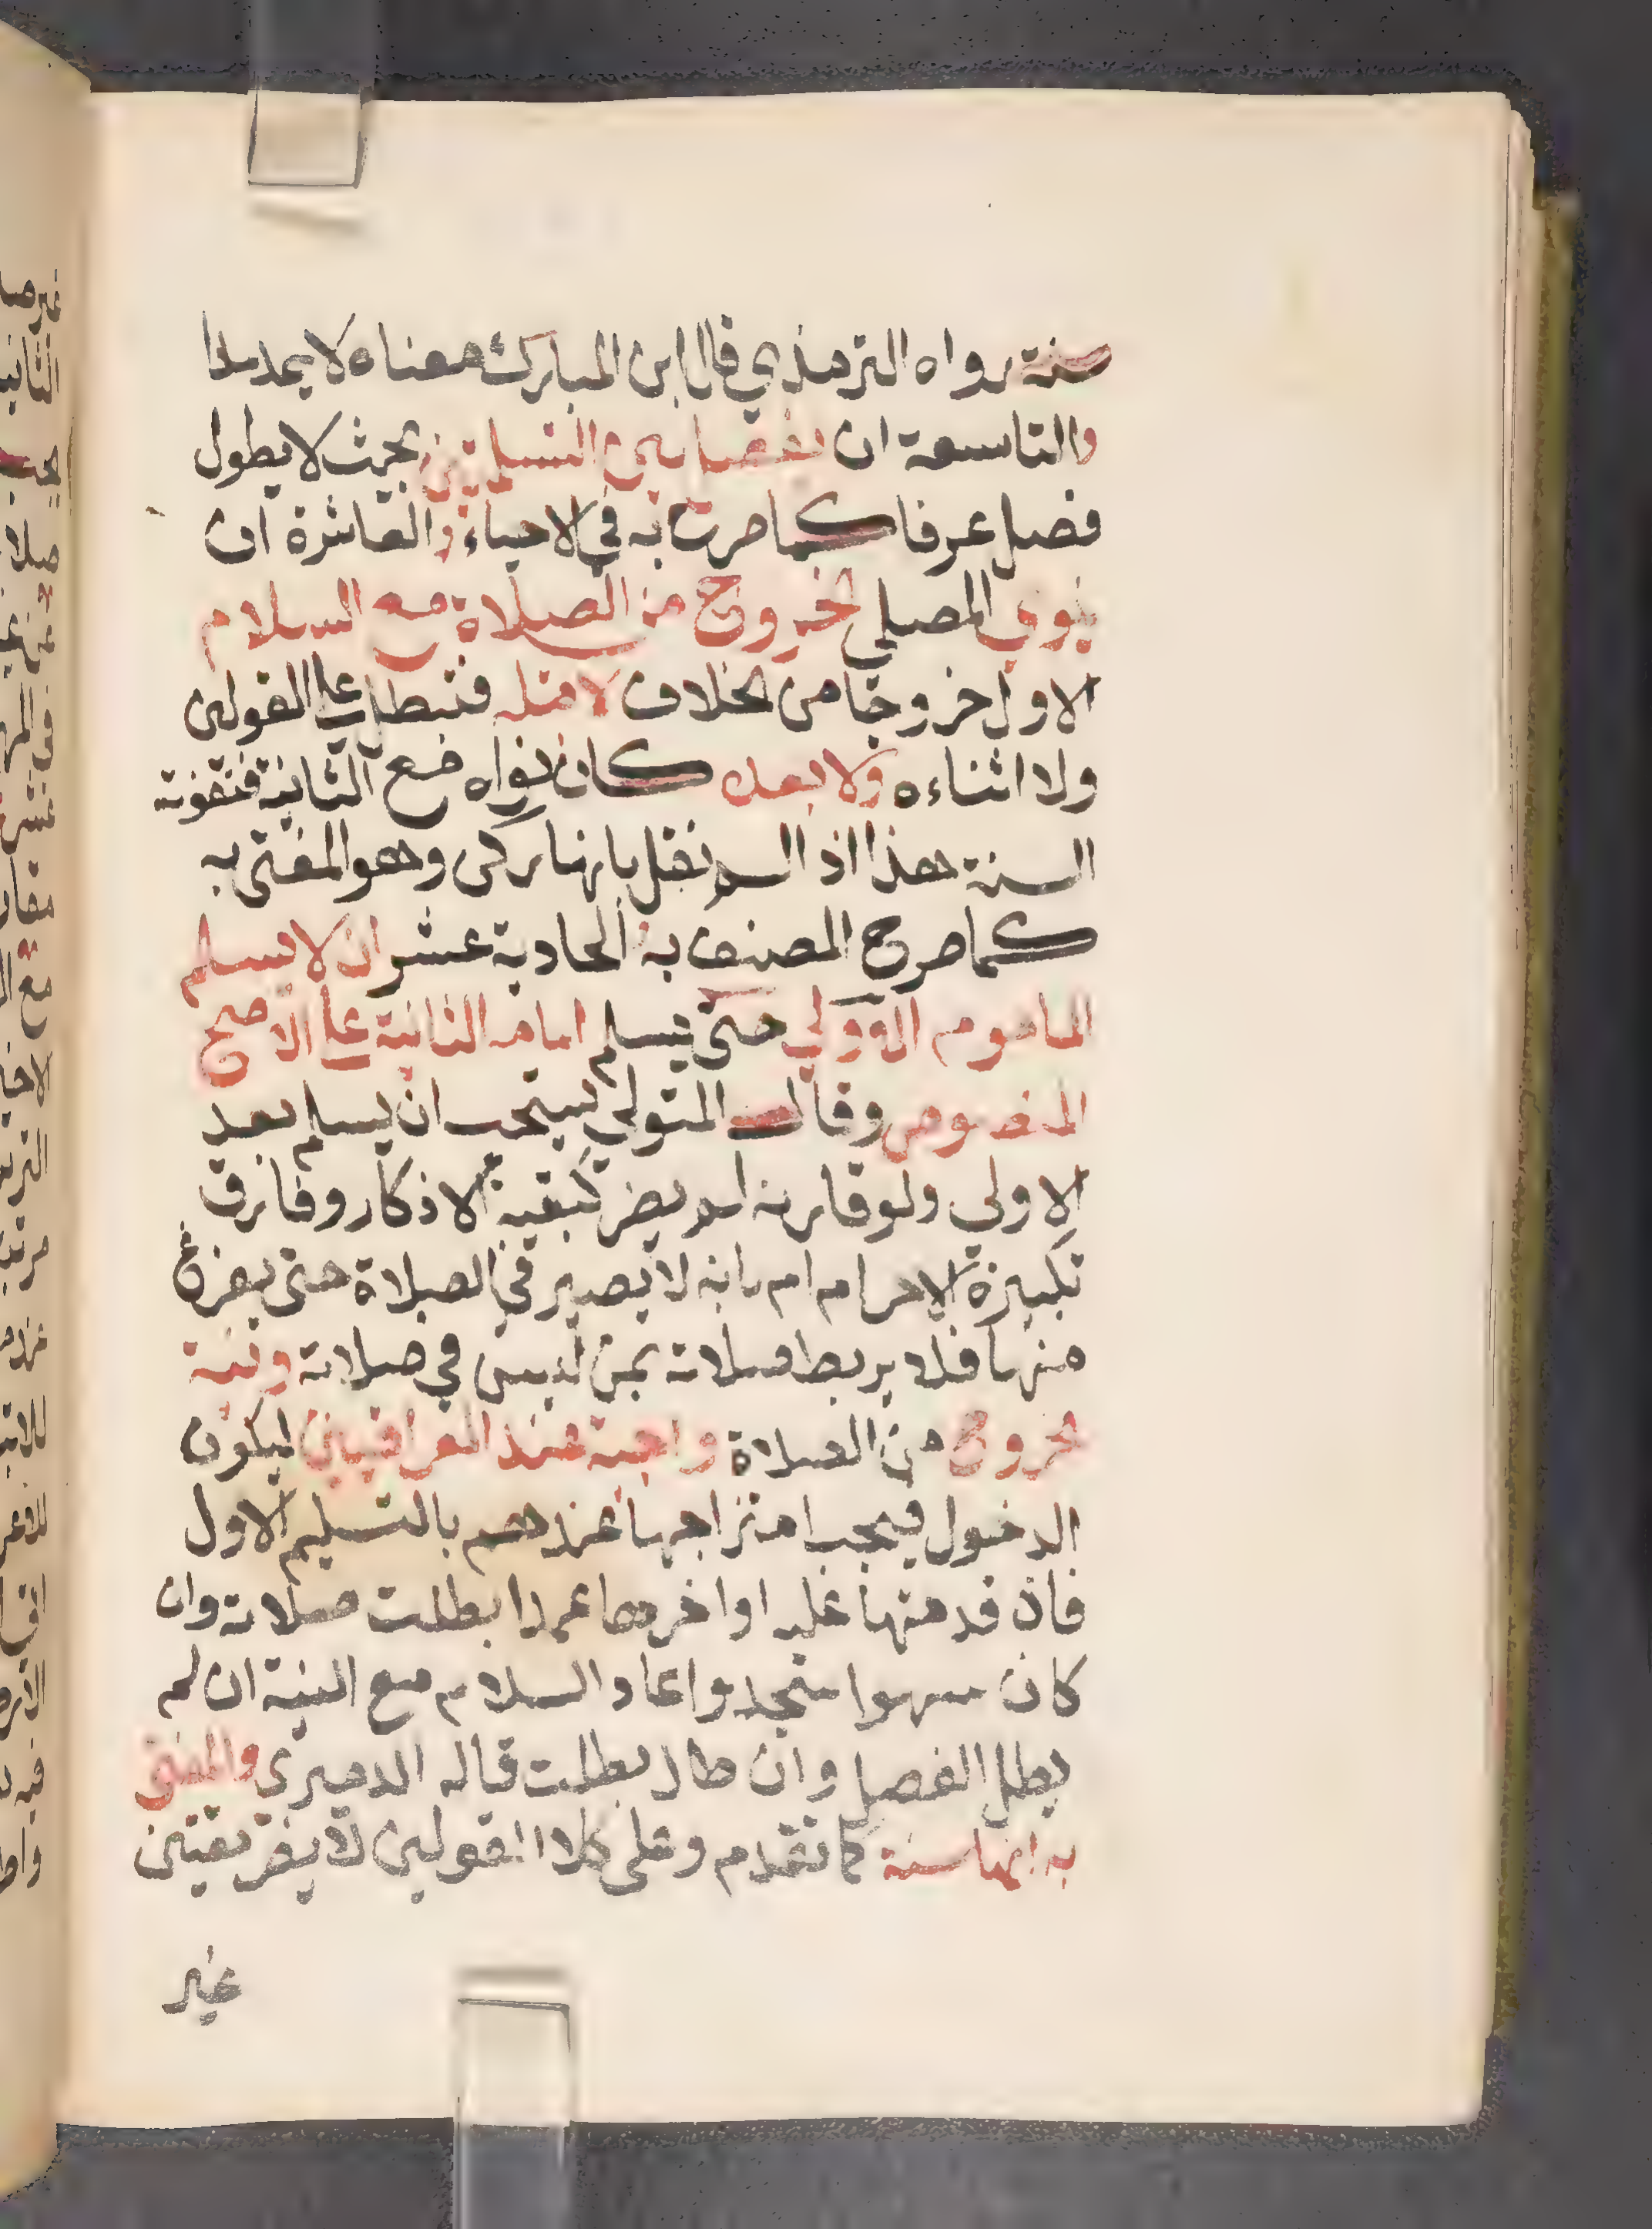 سنة رواه الترمذي قال ابن المبارك معناه لا يمد مدا
والتاسعة ان يفصل بين التسليمتين بحيث لا يطول
فصل عرفا كما صرح به في الاحياء والعاشرة ان
ينوي المصلي الخروج من الصلاة مع السلام
الاول خروجا من الخلاف لا قبله فتبطل على القولين
ولا اثناءه ولا بعده كان نواه مع الثانية فتفوته
السنة هذا اذ الم نقل بانها ركن وهو المفتى به
كما صرح المصنف به الحادية عشر ان لا يسلم
الماموم الاولى حتى يسلم امامه الثانية على الاصح
المنصوص وقال المتولي يستحب ان يسلم بعد
الاولى ولو قارنه لم يضر كبقية الاذكار وفارق
تكبيرة الاحرام بانه لا يصير في الصلاة حتى يفرغ
منها فلا يربط صلاته بمن ليس في صلاة ونية
الخروج من الصلاة واجبة عند العراقيين ليكون
الدخول فيجب امتزاجها عندهم بالتسليم الاول
فان قدمتها عليه او اخرها عمدا بطلت صلاته وان
كان سهوا سجد واعاد السلام مع النية ان لم
يطل الفصل وان طال بطلت قاله الدميري والمفتى
به انها سنة كما تقدم وعلى كلا القولين لا يضر تعيين
غير